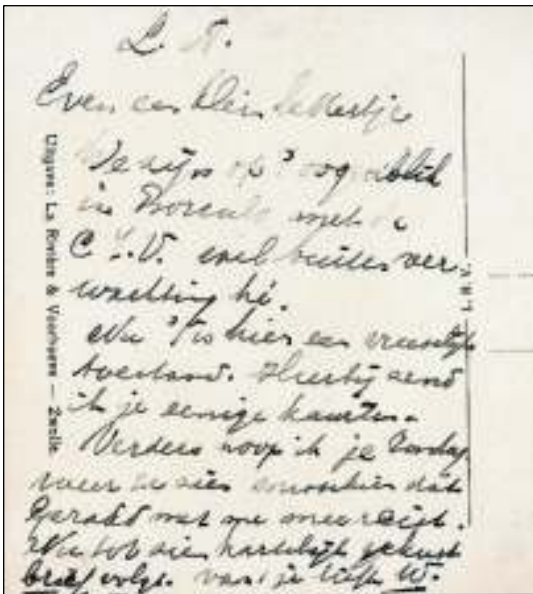 L. R.
Even een klein lettertje
We zijn op 't oogenblik
in Borculo met de
C.L.V. wel buiten ver-
wachting hé.
Nu 't is hier een vreeselijke
toestand. Hierbij zend
ik je eenige kaarten.
Verders hoop ik je Zondag
weer te zien misschien dat
Gerard met me mee reist.
Nu tot ziens hartelijk gekust
brief volgt. van je liefh. W.
Uitgave: La Rivière & Voorhoeve — Zwolle